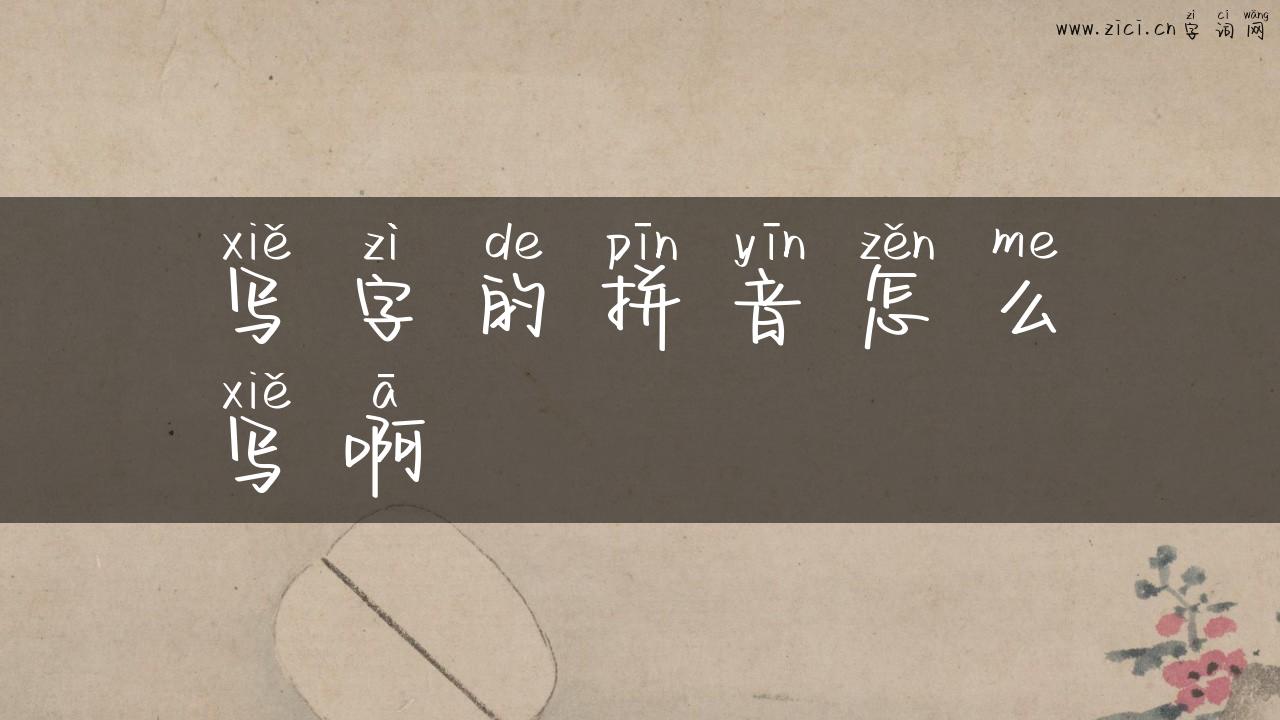 zì cí wǎng
www.zici.cn 字词网
xiě zì de pīn yīn zěn me
写字的拼音怎么
xiě ā
写啊